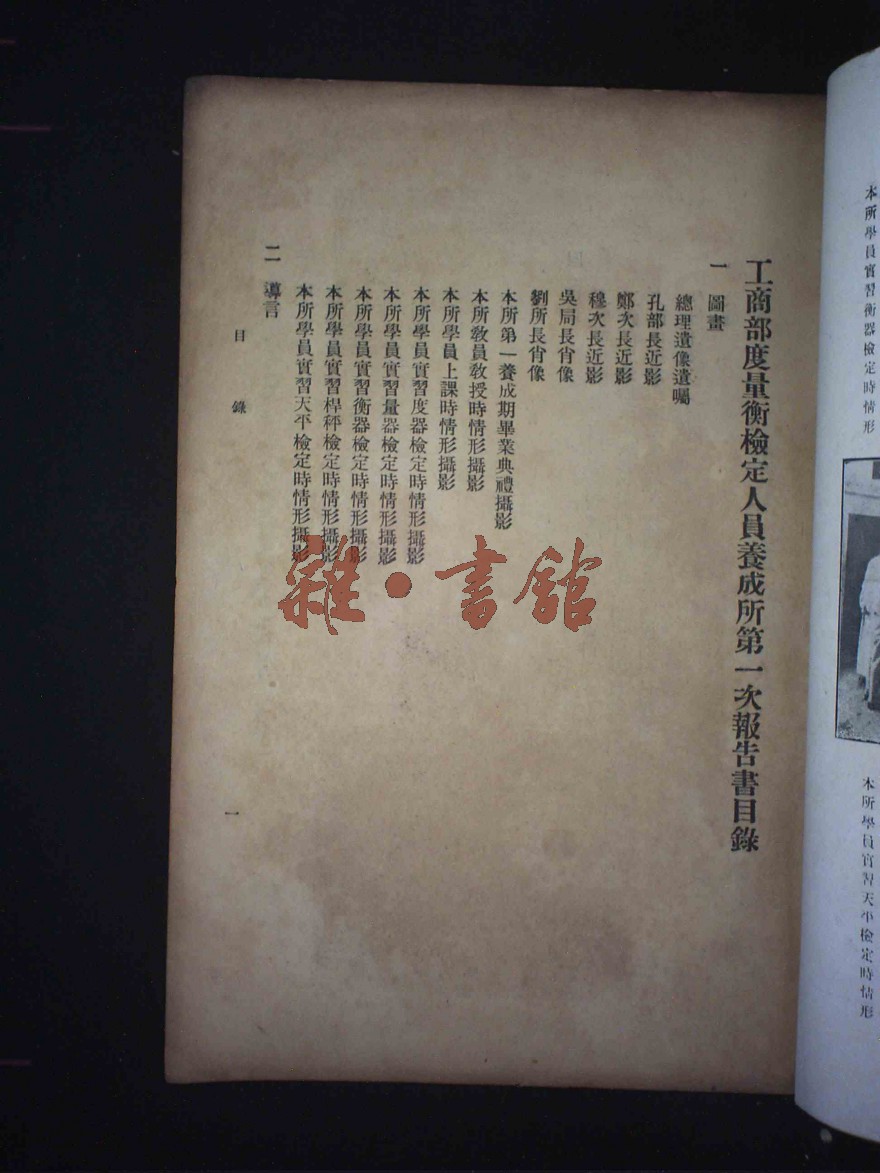 本所學員實習衡器檢定時情形
本所學員實習天平檢定時情形
工商部度量衡檢定人員養成所第一次報告書目錄
一 圖畫
總理遺像遺囑
孔部長近影
鄭次長近影
穆次長近影
吳局長肖像
劉所長肖像
本所第一養成期畢業典禮攝影
本所教員教授時情形攝影
本所學員上課時情形攝影
本所學員實習度器檢定時情形攝影
本所學員實習量器檢定時情形攝影
本所學員實習衡器檢定時情形攝影
本所學員實習桿秤檢定時情形攝影
本所學員實習天平檢定時情形攝影
二 導言
目錄
一
雜·書館